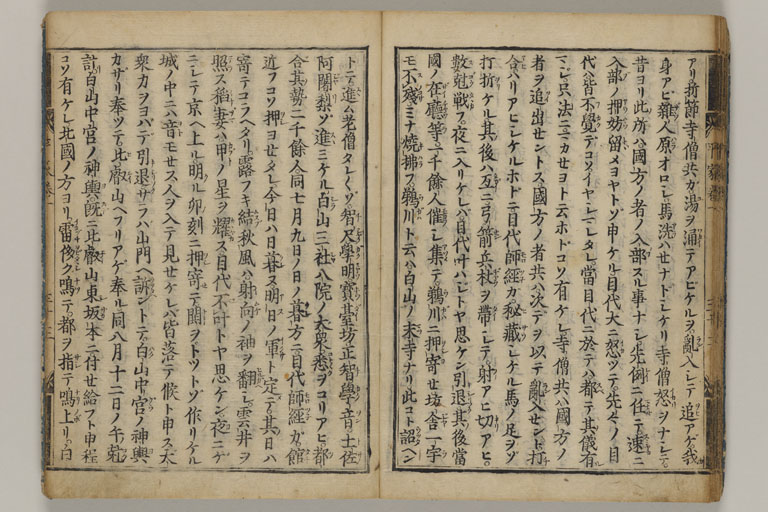 アリ折節寺僧共ガ湯ヲ涌テアビケルヲ亂入シテ追アゲ我
身アビ雜人原オロシ馬洗ハセナドシケリ寺僧怒ヲナシテ
昔ヨリ此所ハ國方ノ者ノ入部スル事ナシ先例ニ任テ速ニ
入部ノ押妨留メヨヤトゾ申ケル目代大ニ怒ツテ先々ノ目
代ハ皆不覺デコソイヤシマレタレ當目代ニ於テハ都テ其儀有
マジ只法ニマカセヨト云ホドコソ有ケレ寺僧共ハ國方ノ
者ヲ追出セントス國方ノ者共ハ次デヲ以テ亂入セント打
合ハリアヒシケルホドニ目代師經ガ秘藏シケル馬ノ足ヲゾ
打折ケル其後ハ互ニ弓箭兵杖ヲ帶シテ射アヒ切アヒ
數尅戰フ夜ニ入リケレバ目代叶ハジトヤ思ケン引退其後當
國ノ在廳等一千餘人催シ集テ鵜川ニ押寄セ坊舍一宇
モ不殘ミナ燒拂フ鵜川ト云ハ白山ノ末寺ナリ此コト訴ヘン
トテ進ム老僧タレ〳〵ゾ智尺學明寶臺坊正智學音土佐
阿闍梨ゾ進ミケル白山三社八院ノ大衆悉ヲコリアヒ都
合其勢二千餘人同七月九日ノ日ノ暮方ニ目代師經ガ館
近フコソ押ヨセタレ今日ハ日暮ヌ明日ノ軍ト定テ其日ハ
寄テコラヘタリ露フキ結秋風ハ射向ノ袖ヲ翻シ雲井ヲ
照ス稻妻ハ甲ノ星ヲ耀ス目代不叶トヤ思ケン夜ニゲ
ニシテ京ヘ上ル明ル卯刻ニ押寄テ閧ヲドツトゾ作リケル
城ノ中ニハ音モセス人ヲ入テ見セケレバ皆落テ候ト申ス大
衆力ヲヨバデ引退サラバ山門ヘ訴ントテ白山中宮ノ神輿
カザリ奉ツテ比叡山ヘフリアゲ奉ル同八月十二日ノ午尅
計白山中宮ノ神輿既ニ比叡山東坂本ニ付セ給フト申程
コソ有ケレ北國ノ方ヨリ雷俊ク鳴テ都ヲ指テ鳴上リ白